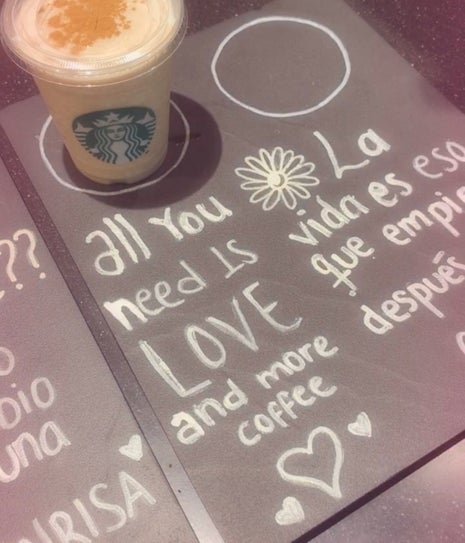 all You
need IS
LOVE
and more
coffee
La
vida es eso
que empie
después
??
una